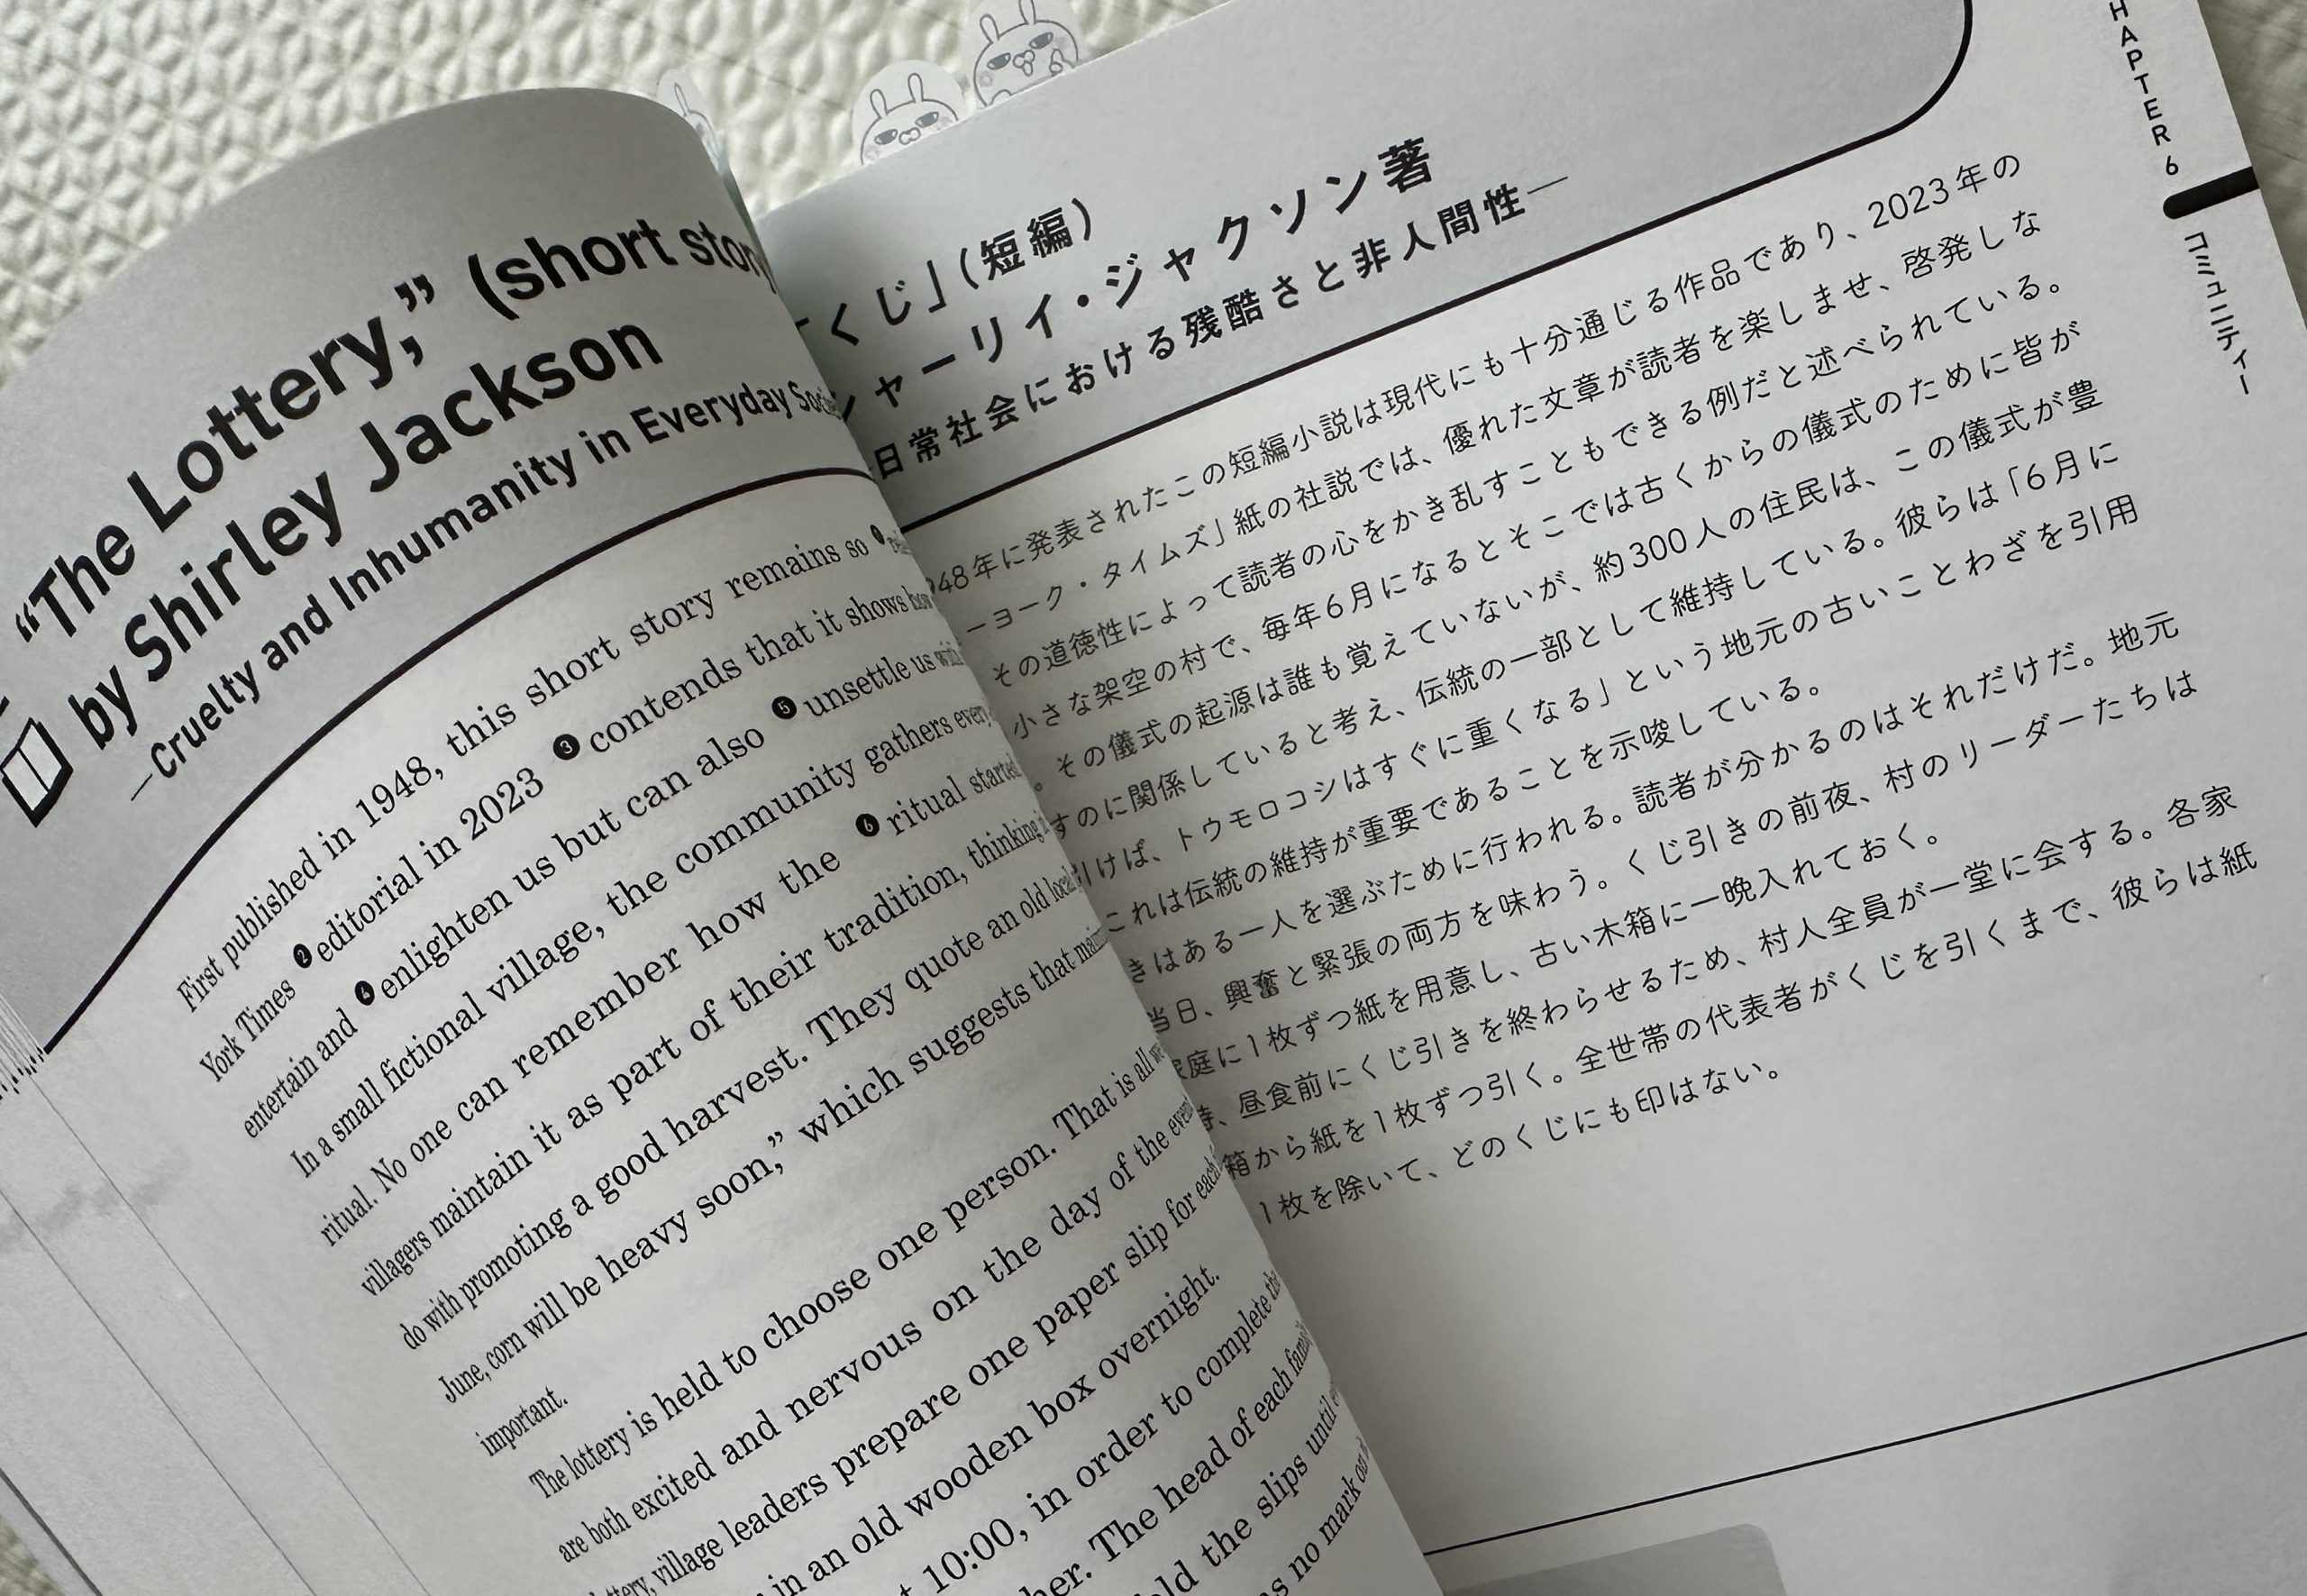 “The Lottery,” (short story
by Shirley Jackson
—Cruelty and Inhumanity in Everyday
First published in 1948, this short story remains so ❶
York Times ❷editorial in 2023 ❸contends that it shows how
entertain and ❹enlighten us but can also ❺unsettle us with
In a small fictional village, the community gathers every
ritual. No one can remember how the ❻ritual started
villagers maintain it as part of their tradition, thinking
do with promoting a good harvest. They quote an old local
June, corn will be heavy soon,” which suggests that
important.
The lottery is held to choose one person. That is all we
are both excited and nervous on the day of the event
village leaders prepare one paper slip for each
in an old wooden box overnight.
10:00, in order to complete the
The head of each family
the slips until
no mark on
「くじ」(短編)
シャーリイ・ジャクソン著
日常社会における残酷さと非人間性—
948年に発表されたこの短編小説は現代にも十分通じる作品であり、2023年の
ーヨーク・タイムズ」紙の社説では、優れた文章が読者を楽しませ、啓発しな
その道徳性によって読者の心をかき乱すこともできる例だと述べられている。
小さな架空の村で、毎年6月になるとそこでは古くからの儀式のために皆が
。その儀式の起源は誰も覚えていないが、約300人の住民は、この儀式が豊
すのに関係していると考え、伝統の一部として維持している。彼らは「6月に
引けば、トウモロコシはすぐに重くなる」という地元の古いことわざを引用
これは伝統の維持が重要であることを示唆している。
きはある一人を選ぶために行われる。読者が分かるのはそれだけだ。地元
当日、興奮と緊張の両方を味わう。くじ引きの前夜、村のリーダーたちは
家庭に1枚ずつ紙を用意し、古い木箱に一晩入れておく。
時、昼食前にくじ引きを終わらせるため、村人全員が一堂に会する。各家
箱から紙を1枚ずつ引く。全世帯の代表者がくじを引くまで、彼らは紙
1枚を除いて、どのくじにも印はない。
HAPTER 6
コミュニティー